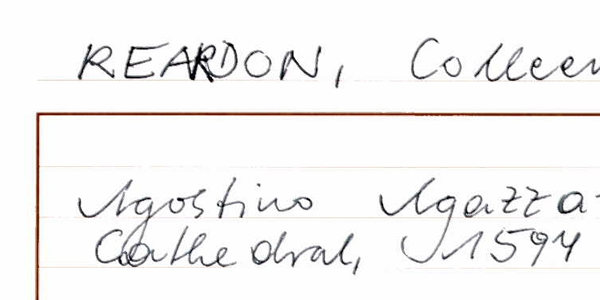 REARDON, Colleen
Agostino Agazza
Cathedral, 1594